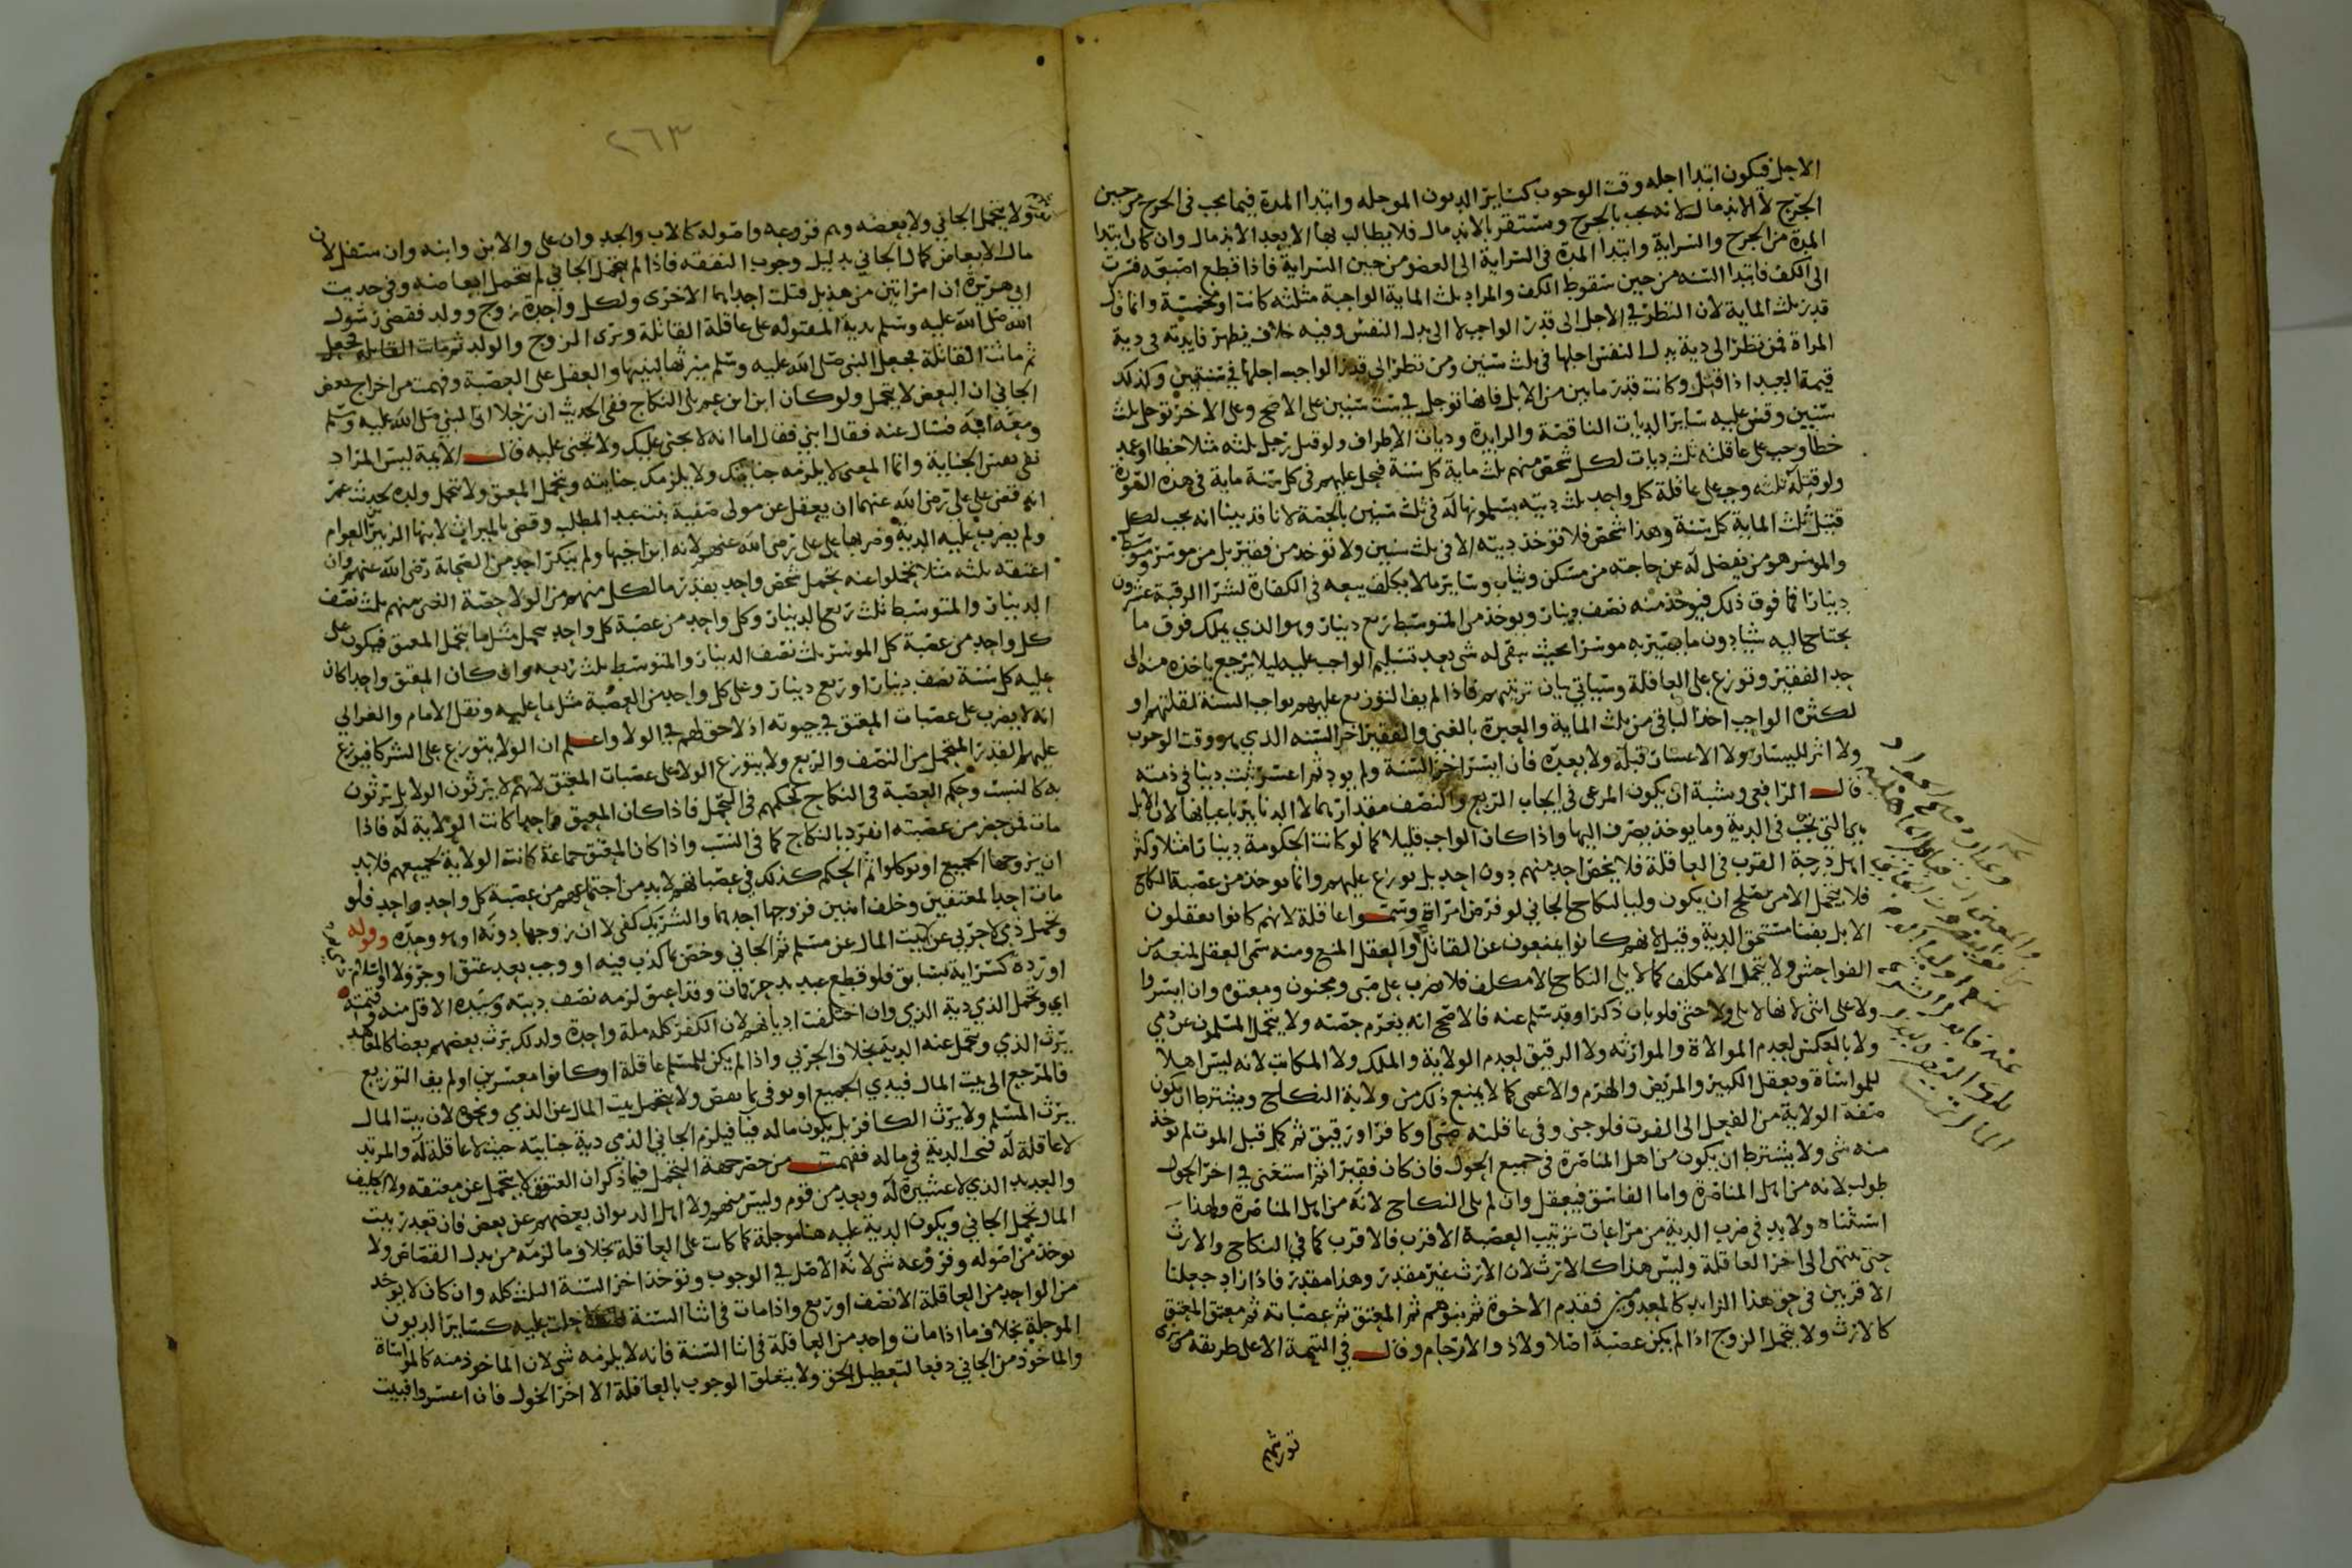 الاجل فيكون ابتدا اجله وقت الوجوب كساير الديون الموجله وابتدا المدة فيما يجب فى الجرح من حين
الجرح لا الاندمال لانه يجب بالجرح ويستقر بالاندمال فلا يطالب بها الا بعد الاندمال وان كان ابتدا
المدة من الجرح والسراية وابتدا المدة فى السراية الى العضو من حين السراية فاذا قطع اصبعه فسرت
الى الكف فابتدا السنه من حين سقوط الكف والمراد بثلث الماية الواجبة مثلثه كانت او مخمسة وانما قال
قدر ثلث الماية لان النظر في الاجل الى قدر الواجب لا الى بدل النفس وفيه خلاف يظهر فايدته فى دية
المراة فمن نظر الى دية بدل النفس اجلها فى ثلث سنين ومن نظر الى قدر الواجب اجلها في سنتين وكذلك
قيمة العبد اذا قتل وكانت قدر مايتين من الابل فانها توجل في ست سنين على الاصح وعلى الاخر توجل بثلث
سنين وقس عليه ساير الديات الناقصة والزايدة وديات الاطراف ولو قتل رجل ثلثه مثلا خطا او عمد
خطا وجب على عاقلته ثلث ديات لكل شخص منهم ثلث ماية كل سنة فيحل عليهم فى كل سنة ماية فى هذه الصورة
ولو قتله ثلثه وجب على عاقلة كل واحد ثلث ديته يسلمونها له فى ثلث سنين بالحصة لانا قد بينا انه يجب لكل
قتيل ثلث الماية كل سنة وهذا شخص فلا توخذ ديته الا فى ثلث سنين ولا توخذ من فقير بل من موسر ومتوسط
والموسر هو من يفضل له عن حاجته من مسكن وثياب وساير ما لا يكلف بيعه فى الكفارة لشرا الرقبة عشرون
دينارا فما فوق ذلك فيوخذ منه نصف دينار ويوخذ من المتوسط ربع دينار وهو الذي يملك فوق ما
يحتاج اليه شيا دون ما يصير به موسرا بحيث يبقى له شى بعد تسليم الواجب عليه ليلا يرجع باخذه منه الى
حد الفقير وتوزع على العاقلة وسياتي بيان ترتيبهم فاذا لم يف التوزيع عليهم بواجب السنة لقلتهم او
لكثرة الواجب اخذ الباقى من ثلث الماية والعبرة بالغنى والفقير اخر السنه الذي هو وقت الوجوب
ولا اثر لليسار ولا الاعسار قبله ولا بعده فان ايسر اخر السنة ولم يود ثم اعسر ثبت دينا فى ذمته
قال الرافعى ويشبه ان يكون المرعى فى ايجاب الربع والنصف مقدارهما لا الدنانير باعيانها لان الابل
هى التي تجب فى الدية وما يوخذ يصرف اليها واذا كان الواجب قليلا كما لو كانت الحكومة دينارا مثلا وكثر
اهل درجة القرب فى العاقلة فلا يخص احد منهم دون احد بل يوزع عليهم وانما يوخذ من عصبة النكاح
فلا يتحمل الا من يصلح ان يكون وليا لنكاح الجاني لو فرض امراة وسموا عاقلة لانهم كانوا يعقلون
الابل بفنا مستحق الدية وقيل لانهم كانوا يمنعون عن القاتل والعقل المنع ومنه سمى العقل لمنعه من
الفواحش ولا يتحمل الا مكلف كما لا يلي النكاح الا مكلف فلا تضرب على صبى ومجنون ومعتوه وان ايسروا
ولا على انثى لانها لا تلى ولا خنثى فلو بان ذكرا وقد سلم عنه فالاصح انه يغرم حصته ولا يتحمل المسلمون عن ذمي
ولا بالعكس لعدم الموالاة والموارثه ولا الرقيق لعدم الولاية والملك ولا المكاتب لانه ليس اهلا
للمواساة ويعقل الكبير والمريض والهرم والاعمى كما لا يمنع ذلك من ولاية النكاح ويشترط ان تكون
صفة الولاية من الفعل الى الفوت فلو جنى وفى عاقلته صبى او كافر او رقيق ثم كمل قبل الموت لم يوخذ
منه شى ولا يشترط ان يكون من اهل المناصرة فى جميع الحول فان كان فقيرا ثم استغنى في اخر الحول
طولب لانه من اهل المناصرة واما الفاسق فيعقل وان لم يلى النكاح لانه من اهل المناصرة ولهذا
استثناه ولا بد فى ضرب الدية من مراعات ترتيب العصبة الاقرب فالاقرب كما في النكاح والارث
حتى ينتهى الى اخر العاقلة وليس هذا كالارث لان الارث غير مقدر وهذا مقدر فاذا زاد جعلنا
الاقربين فى حق هذا الزايد كالمعدومين فقدم الاخوة ثم بنوهم ثم المعتق ثم عصباته ثم معتق المعتق
كالارث ولا يتحمل الزوج اذا لم يكن عصبة اصلا ولا ذوا الارحام وقال في التتمة الا على طريقة من يرى
تورثيهم
٢٦٣
ولا يتحمل الجاني ولا بعضه وهم فروعه واصوله كالاب والجد وان على والابن وابنه وان سفل لان
مال الابعاض كمال الجاني بدليل وجوب النفقه فاذا لم يتحمل الجاني لم تتحمل ابعاضه وفى حديث
ابى هريرة ان امراتين من هذيل قتلت احداهما الاخرى ولكل واحدة زوج وولد فقضى رسول
الله صلى الله عليه وسلم بدية المقتوله على عاقلة القاتلة وبرى الزوج والولد ثم ماتت القاتله فجعل
ثم ماتت القاتلة فجعل النبى صلى الله عليه وسلم ميرثها لبنيها والعقل على العصبة وفهمت من اخراج بعض
الجاني ان البعض لا يتحمل ولو كان ابن ابن عم يلى النكاح ففى الحديث ان رجلا اتى النبي صلى الله عليه وسلم
ومعه ابنه فسال عنه فقال ابني فقال اما انه لا يجنى عليك ولا تجنى عليه قال الايمة ليس المراد
نفى نفس الجناية وانما المعنى لا يلزمه جنايتك ولا يلزمك جنايته ويتحمل المعتق ولا تتحمل ولده لحديث عمر
انه قضى على على رضى الله عنهما ان يعقل عن مولى صفية بنت عبد المطلب وقضى بالميراث لابنها الزبير بن العوام
ولم يضرب عليه الدية وضربها على على رضى الله عنهم لانه ابن اخيها ولم ينكر احد من الصحابة رضى الله عنهم وان
اعتقه ثلثه مثلا تحملوا عنه تحمل شخص واحد بقدر ما لكل منهم من الولا حصة الغنى منهم ثلث نصف
الدينار والمتوسط ثلث ربع الدينار وكل واحد من عصبة كل واحد يتحمل مثل ما يتحمل المعتق فيكون على
كل واحد من عصبة كل الموسر ثلث نصف الدينار والمتوسط ثلث ربعه وان كان المعتق واحدا كان
عليه كل سنة نصف دينار او ربع دينار وعلى كل واحد من العصبة مثل ما عليه ونقل الامام والغزالي
انه لا يضرب على عصبات المعتق في حيوته اذ لا حق لهم في الولا واعلم ان الولا يتوزع على الشركا فيوزع
عليهم القدر المتحمل من النصف والربع ولا يتوزع الولا على عصبات المعتق لانهم لا يرثون الولا بل يرثون
به كالنسب وحكم العصبة فى النكاح كحكمهم فى التحمل فاذا كان المعتق واحدا كانت الولاية له فاذا
مات فمن حضر من عصبته انفرد بالنكاح كما فى النسب واذا كان المعتق جماعة كانت الولاية لجميعهم فلا بد
ان يزوجها الجميع او يوكلوا ثم الحكم كذلك فى عصباتهم لا بد من اجتماعهم من عصبة كل واحد واحد فلو
مات احد المعتقين وخلف ابنين فزوجها احدهما والشريك كفى لا ان زوجها دونه او هو وحده وقوله
وتحمل ذمي لا حربي عن بيت المال عن مسلم ثم الجاني وخص بما كذب فيه او وجب بعد عتق او جر ولا او اسلام
او ردة كسراية بسابق فلو قطع عبد يد حر فمات وقد اعتق لزمه نصف ديته وسيده الاقل منه وقيمته
اى وتحمل الذمي دية الذمي وان اختلفت اديانهم لان الكفر كله ملة واحدة ولذلك يرث بعضهم بعضا كالمعاهد
يرث الذمي وتتحمل عنه الدية بخلاف الحربي واذا لم يكن للمسلم عاقلة او كانوا معسرين او لم يف التوزيع
فالمرجع الى بيت المال فيدي الجميع او يوفى ما نقص ولا يتحمل بيت المال عن الذمي ونحوه لان بيت المال
يرث المسلم ولا يرث الكافر بل يكون ماله فيا فيلزم الجاني الذمي دية جنايته حيث لا عاقلة له والمرتد
لا عاقلة له فتجب الدية فى ماله ففهمت من حصر جهة التحمل فيما ذكر ان العتيق لا يتحمل عن معتقه ولا الحليف
والعديد الذي لا عشيرة له ويعد من قوم وليس منهم ولا اهل الديوان بعضهم عن بعض فان تعذر بيت
المال تحمل الجاني ويكون الدية عليه هنا موجلة كما كانت على العاقلة بخلاف ما لزمه من بدل القصاص ولا
يوخذ من اصوله وفروعه شى لانه الاصل في الوجوب ويوخذ اخر السنة الثلث كله وان كان لا يوخذ
من الواحد من العاقلة الا نصف او ربع واذا مات فى اثنا السنة حلت عليه كساير الديون
الموجلة بخلاف ما اذا مات واحد من العاقلة فى اثنا السنة فانه لا يلزمه شى لان الماخوذ منه كالمواساة
والماخوذ من الجاني دفعا لتعطيل الحق ولا يتعلق الوجوب بالعاقلة الا اخر الحول فان اعسروا فبيت